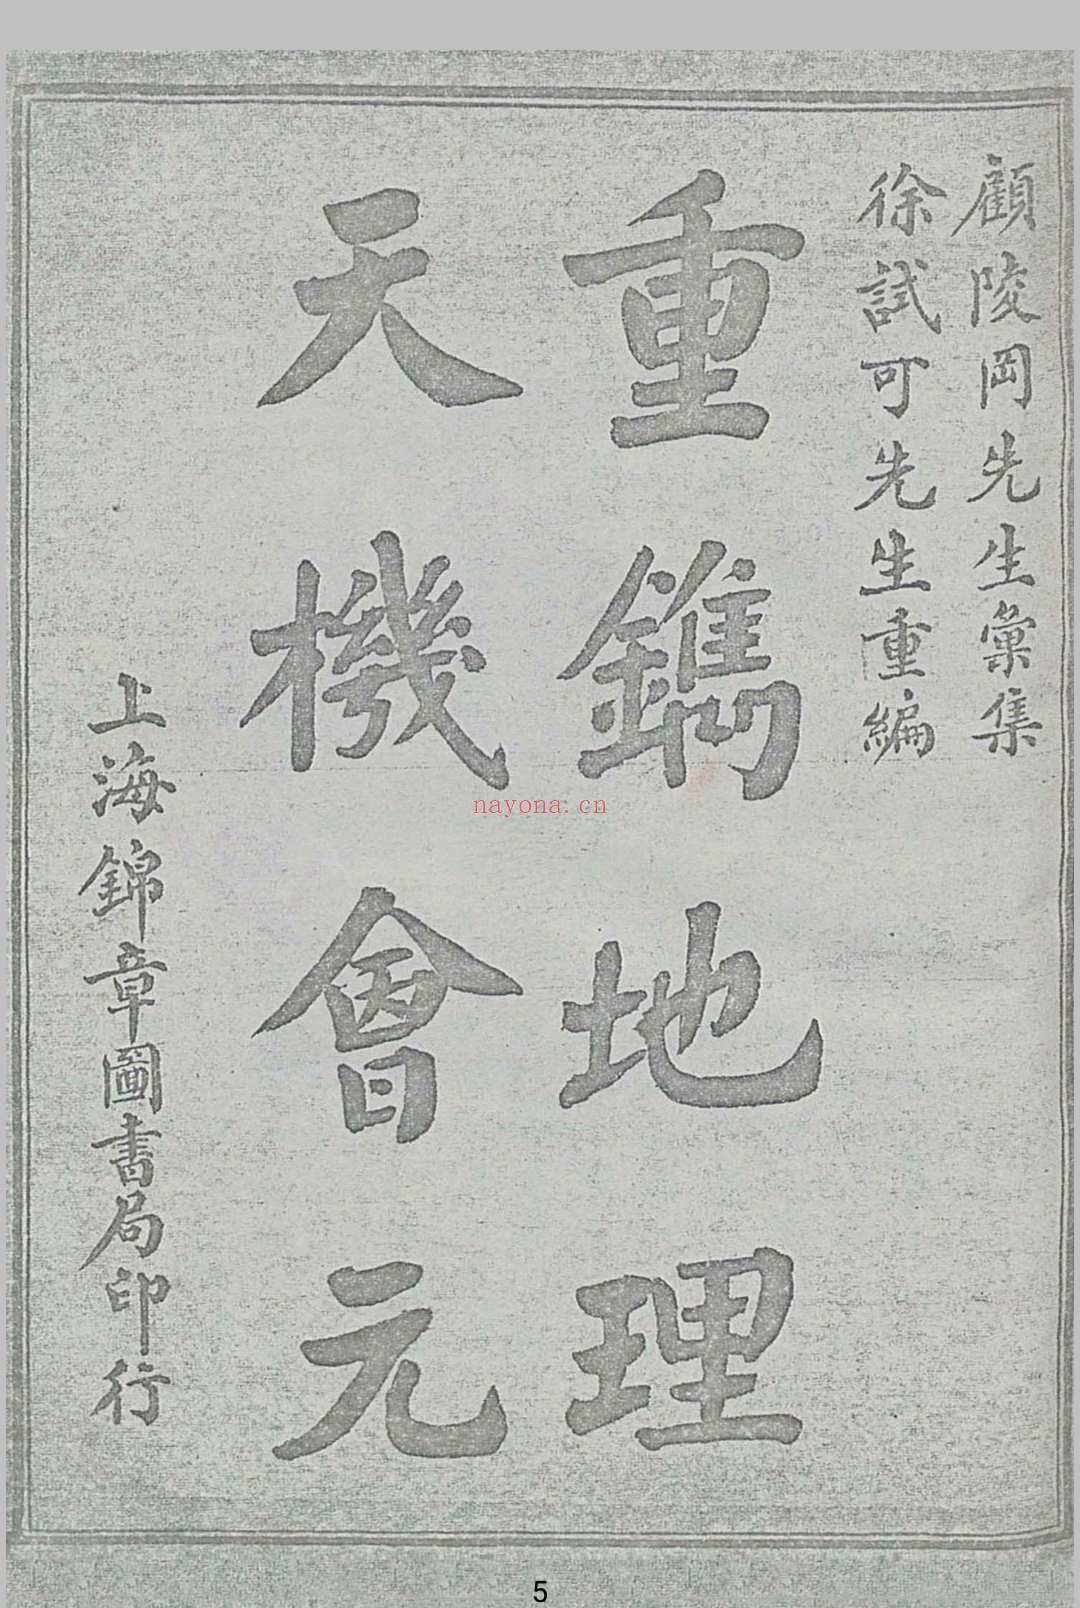 顧陵岡先生彙集
徐試可先生重編
重鐫地理
天機會元
上海錦章圖書局印行
nayona.cn
5